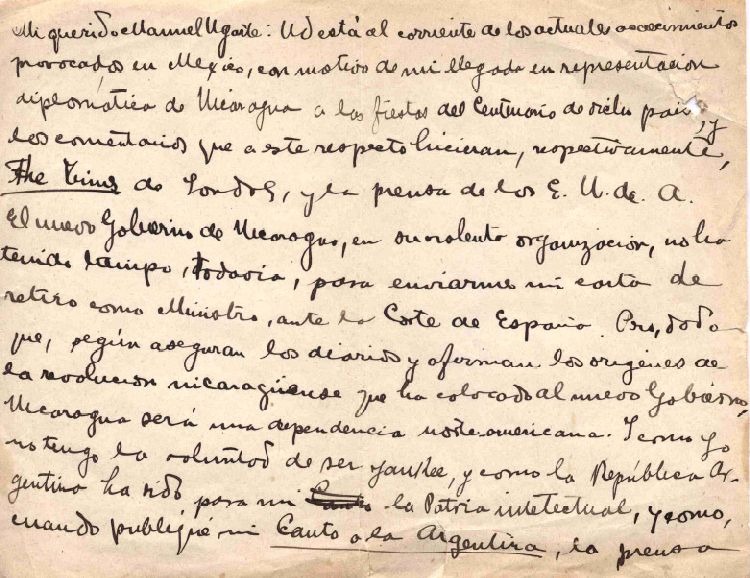 Mi querido Manuel Ugarte: Ud está al corriente de los actuales acaecimientos
provocados en Mexico, con motivo de mi llegada en representación
diplomática de Nicaragua a las fiestas del Centenario de dicho país, y
los comentarios que a este respecto hicieran, respectivamente,
The Times de Londres, y la prensa de los E. U. de A.
El nuevo Gobierno de Nicaragua, en su violenta organización, no ha
tenido tiempo, todavía, para enviarme mi carta de
retiro como Ministro, ante la Corte de España. Pero, dado
que, según aseguran los diarios y afirman los orígenes de
la revolución nicaragüense que ha colocado al nuevo Gobierno,
Nicaragua será una dependencia norteamericana. Y como yo
no tengo la voluntad de ser yankee, y como la República Ar-
gentina ha sido para mi la Patria intelectual, y como,
cuando publiqué mi Canto a la Argentina, la prensa